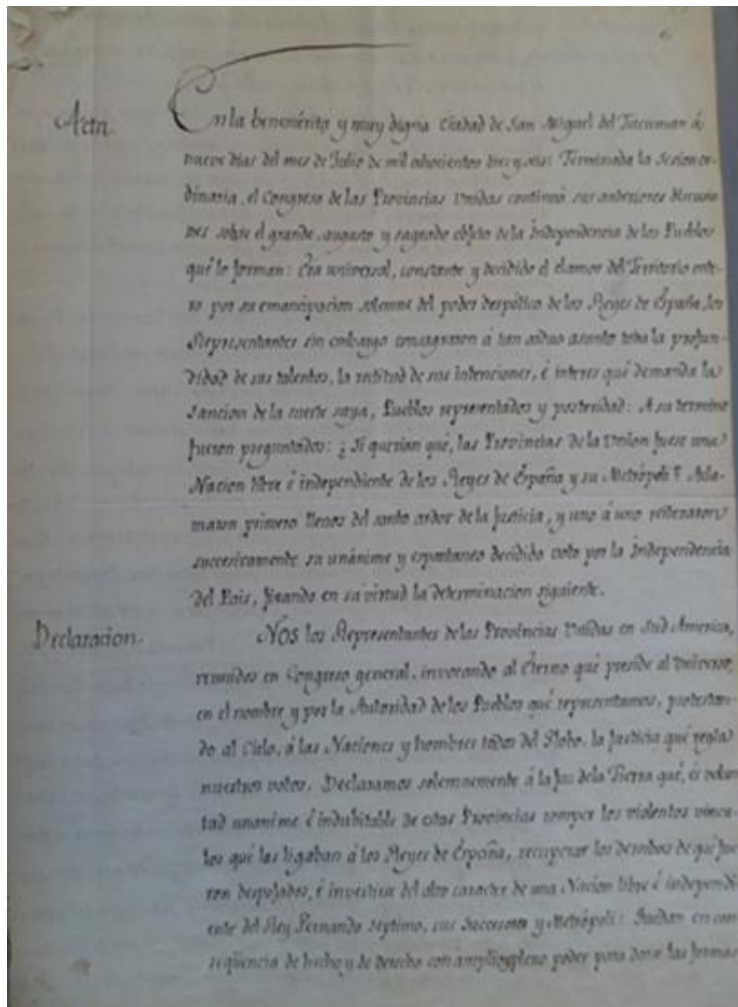 6
Acta.
En la benemérita y muy digna Ciudad de San Miguel del Tucuman á
nueve dias del mes de Julio de mil ochocientos diez y seis: Terminada la Sesion or-
dinaria, el Congreso de las Provincias Unidas continuó sus anteriores discusio-
nes sobre el grande, augusto y sagrado objeto de la Independencia de los Pueblos
qué lo forman: Era universal, constante y decidido el clamor del Territorio ente-
ro por su emancipacion solemne del poder despótico de los Reyes de España, los
Representantes sin embargo consagraron á tan arduo asunto toda la profun-
didad de sus talentos, la rectitud de sus intenciones, é interes qué demanda la
Sancion de la suerte suya, Pueblos representados y posteridad: A su termino
fueron preguntados: ¿Si querian qué, las Provincias de la Union fuese una
Nacion libre é independiente de los Reyes de España y su Metrópoli? Acla-
maron primero llenos del santo ardor de la Justicia, y uno á uno reiteraron
succesivamente su unánime y espontaneo decidido voto por la Independencia
del Pais, fixando en su virtud la determinacion siguiente.
Declaracion.
NOS los Representantes de las Provincias Unidas en Sud America,
reunidos en Congreso general, invocando al Eterno qué preside al Universo,
en el nombre y por la Autoridad de los Pueblos qué representamos, protestan-
do al Cielo, á las Naciones y hombres todos del Globo, la Justicia qué regla
nuestros votos. Declaramos solemnemente á la faz de la Tierra qué, és volun
tad unanime é indubitable de estas Provincias romper los violentos vincu-
los qué las ligaban á los Reyes de España, recuperar los derechos de qué fue
ron despojados, é investirse del alto caracter de una Nacion libre é independi
ente del Rey Fernando Séptimo, sus Succesores y Metrópoli: Quedan en con
seqüencia de hecho y de derecho con amplio y pleno poder para darse las formas